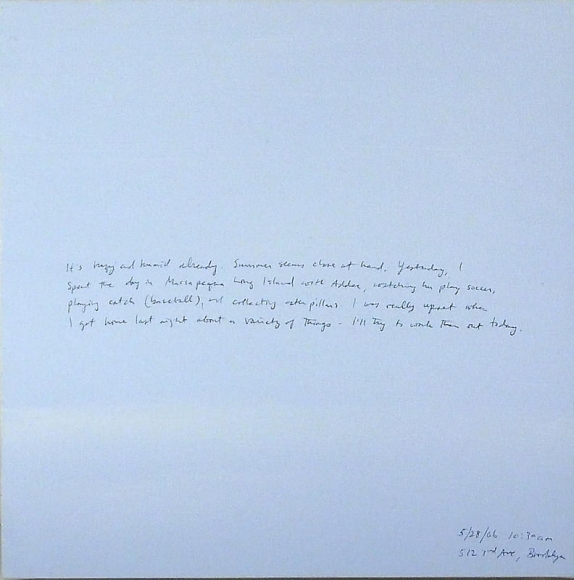 It's hazy and humid already. Summer seems close at hand. Yesterday, I
spent the day in Massapequa Long Island with Addee, watching him play soccer,
playing catch (baseball), and collecting caterpillars I was really upset when
I got home last night about a variety of things - I'll try to work them out today.
5/28/06 10:30am
512 3rd Ave, Brooklyn